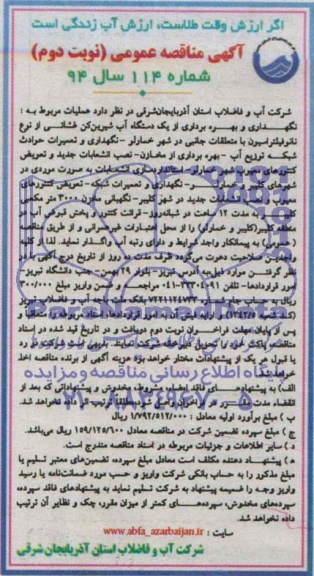 اگر ارزش وقت طلاست، ارزش آب زندگی است
آگهی مناقصه عمومی (نوبت دوم)
شماره ۱۱۴ سال ۹۴
شرکت آب و فاضلاب استان آذربایجان‌شرقی در نظر دارد عملیات مربوط به :
نگهداری و بهره برداری از یک دستگاه آب شیرین‌کن فشاتی از نوع
نانوفیلتراسیون با متعلقات جانبی در شهر خمارلو - نگهداری و تعمیرات حوادث
شبکه توزیع آب - بهره برداری از مخازن-نصب انشعابات جدید و تعویض
انشعابات به صورت موردی در
شهرهای کلیبر و خمارلو - نگهداری و تعمیرات شبکه- تعویض کنتورهای
معیوب و انشعابات جدید در شهر کلیبر- نگهبانی مخازن ۳۰۰۰ متر مکعبی
به مدت ۱۲ ساعت در شبانه‌روز- قرائت کنتور و پخش قبوض آب در
منطقه کلیبر(کلیبر و خمارلو) را از محل اعتبارات غیرعمرانی و از طریق مناقصه
(عمومی) به پیمانکار واجد شرایط و دارای رتبه آب واگذار نماید. لذا از کلیه
واجدین صلاحیت دعوت می‌گردد ظرف مدت ۳ روز از تاریخ درج آگهی با در
نظر گرفتن موارد ذیل به آدرس تبریز- بلوار ۲۹ بهمن-جنب دانشگاه تبریز
امور قراردادها- تلفن مراجعه و ضمن واریز مبلغ
ریال به حساب جاری ۷۲۲۱۱۲۴۷۳۳ بانک ملت باجه آب و فاضلاب تبریز
پس از پایان مهلت فراخوان نوبت دوم دریافت و در تاریخ قید شده در اسناد
مناقصه، پاکت خود را تحویل دبیرخانه شرکت نمایند.
یا قبول هر یک از پیشنهادات مختار خواهد بود هزینه آگهی از برنده مناقصه اخذ
خواهد شد.
پایگاه اطلاع رسانی مناقصه و مزایده
الف) به پیشنهادهای فاقد امضاء، مشروط، مخدوش و پیشنهاداتی که بعد از
ترتیب اثر داده نخواهد شد.
ب ) مبلغ برآورد اولیه معادل : ۱/۷۹۲/۵۱۲/۰۰۰ ریال
ج ) مبلغ سپرده تضمین شرکت در مناقصه معادل ۱۵۹/۱۲۵/۶۰۰ ریال می‌باشد.
د ) سایر اطلاعات و جزئیات مربوطه در اسناد مناقصه مندرج است.
ه ) پیشنهاد دهنده مکلف است معادل مبلغ سپرده، تضمین‌های معتبر تسلیم یا
مبلغ مذکور را به حساب بانکی شرکت واریز و حسب مورد ضمانت‌نامه یا رسید
واریز وجه را ضمیمه پیشنهاد به شرکت تسلیم نماید به پیشنهادهای فاقد سپرده،
سپرده‌های مخدوش، سپرده‌های کمتر از میزان مقرر، چک و نظایر آن ترتیب
داده نخواهد شد.
سایت : www.abfa_azarbaijan.ir
شرکت آب و فاضلاب استان آذربایجان شرقی